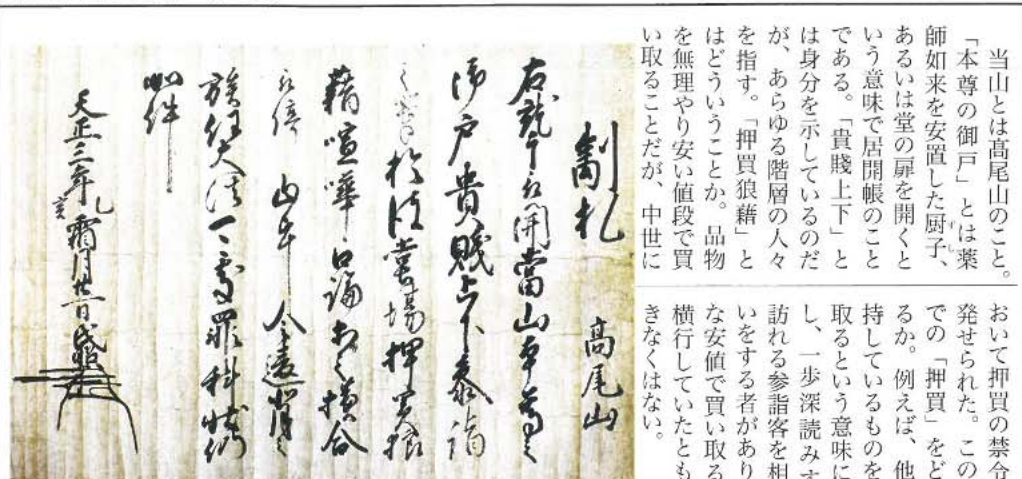 当山とは髙尾山のこと。
「本尊の御戸」とは薬
師如来を安置した厨子、
あるいは堂の扉を開くと
いう意味で居開帳のこと
である。「貴賤上下」と
は身分を示しているのだ
が、あらゆる階層の人々
を指す。「押買狼藉」と
はどういうことか。品物
を無理やり安い値段で買
い取ることだが、中世に
おいて押買の禁令
発せられた。この
での「押買」をど
るか。例えば、他
持しているものを
取るという意味に
し、一歩深読みす
訪れる参詣客を相
いをする者があり
な安値で買い取る
横行していたとも
きなくはない。
制札 高尾山
右就被開當山本尊之
御戸貴賤上下参詣
於彼堂場押買狼
藉喧嘩口論横合
令違背之
族任大法可處罪科状仍
如件
天正三年乙亥霜月廿一日